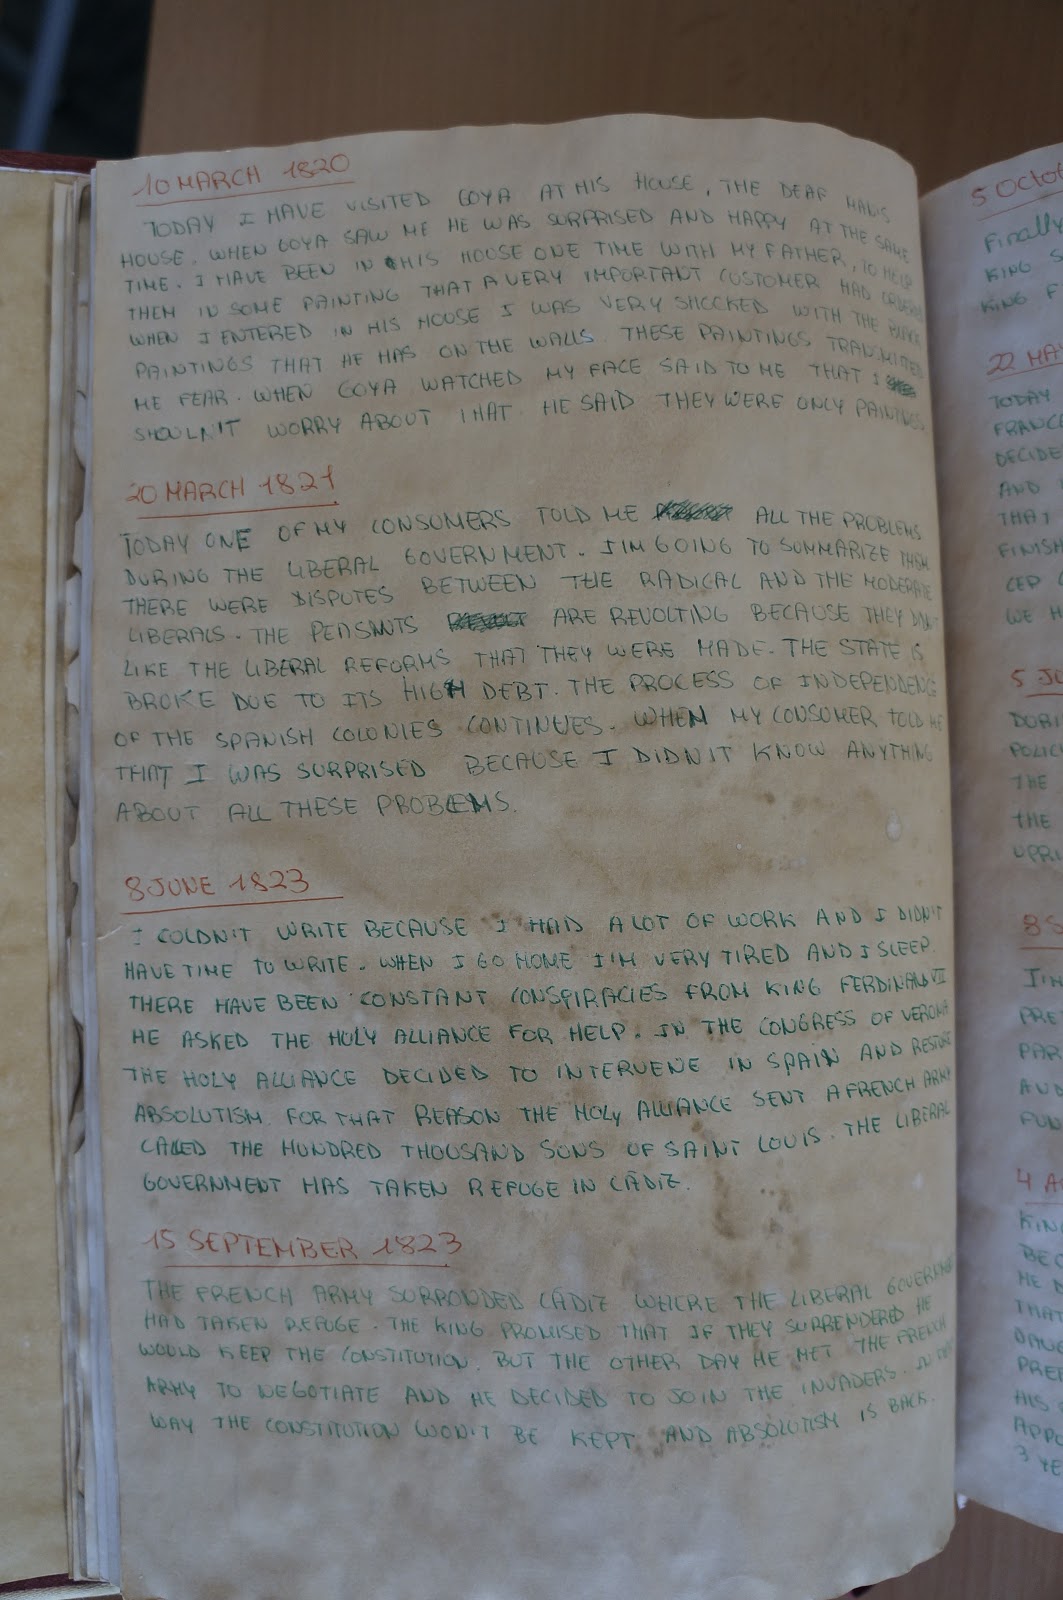 10 MARCH 1820
TODAY I HAVE VISITED GOYA AT HIS HOUSE, THE DEAF MAN'S
HOUSE. WHEN GOYA SAW ME HE WAS SURPRISED AND HAPPY AT THE SAME
TIME. I HAVE BEEN IN HIS HOUSE ONE TIME WITH MY FATHER, TO HELP
THEM IN SOME PAINTING THAT A VERY IMPORTANT CUSTOMER HAD
WHEN I ENTERED IN HIS HOUSE I WAS VERY SHOCKED WITH THE BLACK
PAINTINGS THAT HE HAS ON THE WALLS. THESE PAINTINGS TRANSMITED
ME FEAR. WHEN GOYA WATCHED MY FACE SAID TO ME THAT I
SHOULN'T WORRY ABOUT THAT. HE SAID THEY WERE ONLY PAINTINGS
20 MARCH 1821
TODAY ONE OF MY CONSUMERS TOLD ME ALL THE PROBLEMS
DURING THE LIBERAL GOVERNMENT. I'M GOING TO SUMMARIZE THEM
THERE WERE DISPUTES BETWEEN THE RADICAL AND THE MODERATE
LIBERALS. THE PEASANTS ARE REVOLTING BECAUSE THEY DIDN'T
LIKE THE LIBERAL REFORMS THAT THEY WERE MADE. THE STATE IS
BROKE DUE TO ITS HIGH DEBT. THE PROCESS OF INDEPENDENCE
OF THE SPANISH COLONIES CONTINUES. WHEN MY CONSUMER TOLD ME
THAT I WAS SURPRISED BECAUSE I DIDN'T KNOW ANYTHING
ABOUT ALL THESE PROBLEMS.
8 JUNE 1823
I COLDN'T WRITE BECAUSE I HAD A LOT OF WORK AND I DIDN'T
HAVE TIME TO WRITE. WHEN I GO HOME I'M VERY TIRED AND I SLEEP.
THERE HAVE BEEN CONSTANT CONSPIRACIES FROM KING FERDINAND VII
HE ASKED THE HOLY ALLIANCE FOR HELP. IN THE CONGRESS OF VERONA
THE HOLY ALLIANCE DECIDED TO INTERVENE IN SPAIN AND RESTORE
ABSOLUTISM. FOR THAT REASON THE HOLY ALLIANCE SENT A FRENCH ARMY
CALLED THE HUNDRED THOUSAND SONS OF SAINT LOUIS. THE LIBERAL
GOVERNMENT HAS TAKEN REFUGE IN CÁDIZ.
15 SEPTEMBER 1823
THE FRENCH ARMY SURRONDED CÁDIZ WHERE THE LIBERAL GOVERNMENT
HAD TAKEN REFUGE. THE KING PROMISED THAT IF THEY SURRENDERED HE
WOULD KEEP THE CONSTITUTION. BUT THE OTHER DAY HE MET THE FRENCH
ARMY TO NEGOTIATE AND HE DECIDED TO JOIN THE INVADERS. IN THIS
WAY THE CONSTITUTION WON'T BE KEPT AND ABSOLUTISM IS BACK.
5 Octob
Finally
KING S
KING F
22 MAY
TODAY
FRANCE
DECIDE
AND
THAT
FINISH
CED
WE H
5 JU
DURI
POLIC
THE
THE
UPRI
8 S
I'M
PRE
PAR
AND
FUN
4 A
KIN
BEC
HE
THAT
DAUG
PRE
HIS
APPO
3 YE